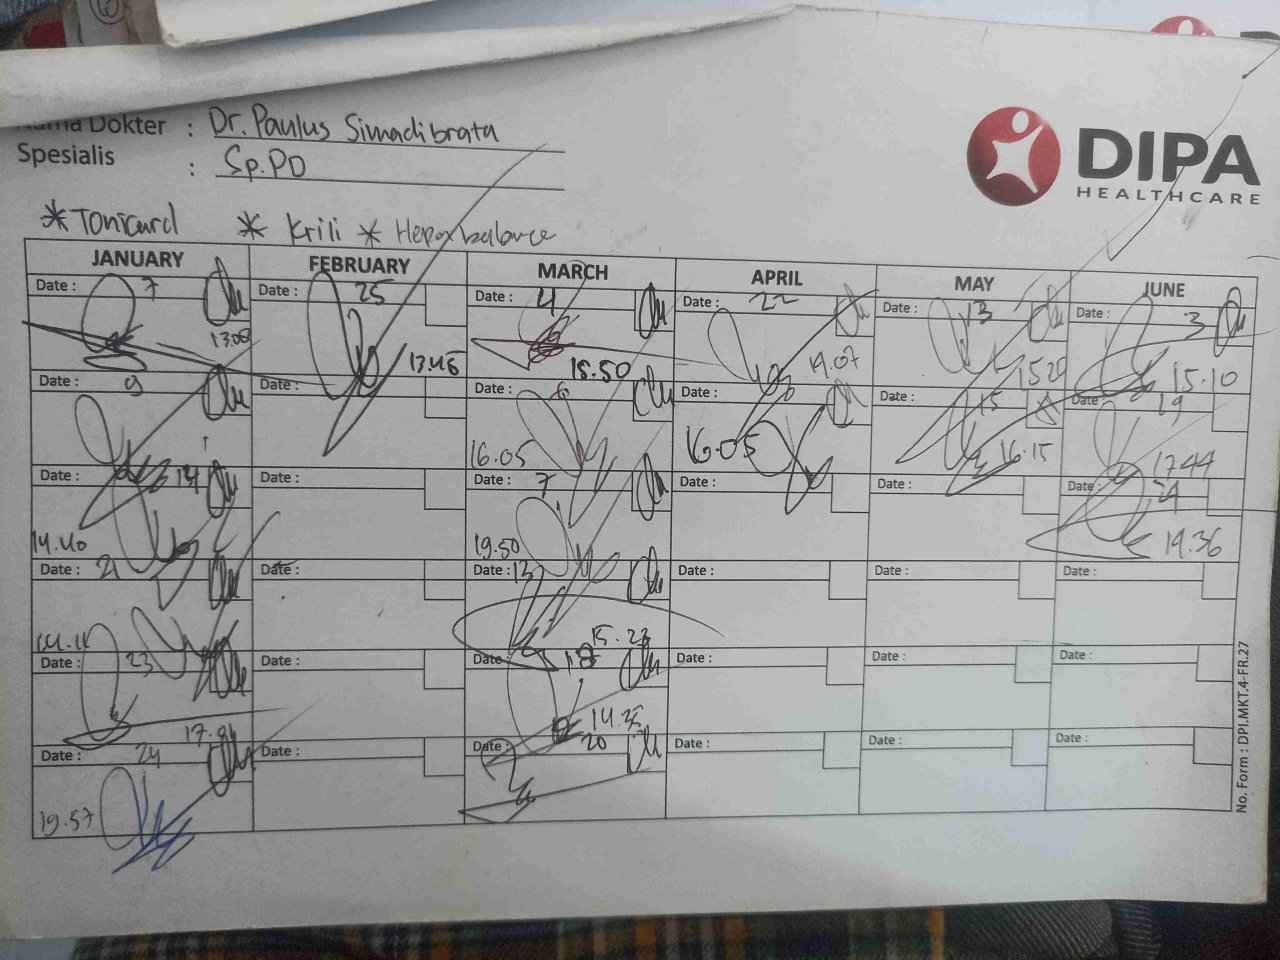 Nama Dokter : Dr. Paulus Simadibrata
Spesialis : Sp.PD
DIPA
HEALTHCARE
* Tonicard * Krili * Hepaxbalance
JANUARY FEBRUARY MARCH APRIL MAY JUNE
Date : 7 Date : 25 Date : 4 Date : 22 Date : 13 Date : 3
13.00 13.45 18.50 14.07 15.20 15.10
Date : 9 Date : Date : 6 Date : Date : 15 Date : 19
16.05 16.05 16.15 17.44
Date : 14 Date : Date : 7 Date : Date : Date : 24
14.40 19.50 14.36
Date : 21 Date : Date : 13 Date : Date : Date :
15.23
Date : 23 Date : Date : 18 Date : Date : Date :
14.25
Date : 24 Date : Date : 20 Date : Date : Date :
19.57
No. Form : DPI.MKT.4-FR.27